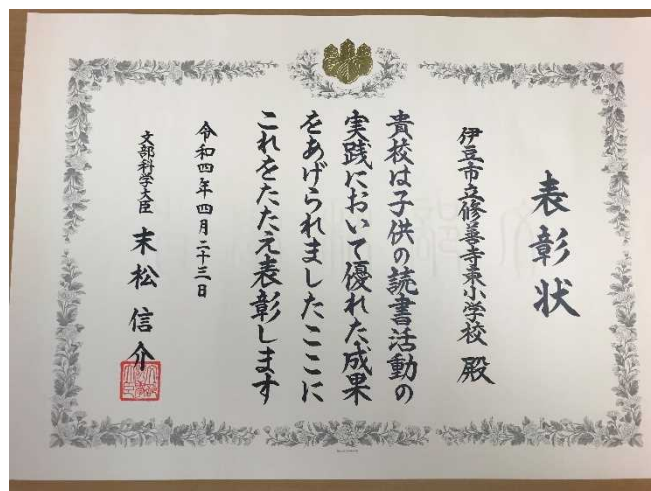 表彰状
伊豆市立修善寺東小学校 殿
貴校は子供の読書活動の
実践において優れた成果
をあげられましたここに
これをたたえ表彰します
令和四年四月二十三日
文部科学大臣 末松信介